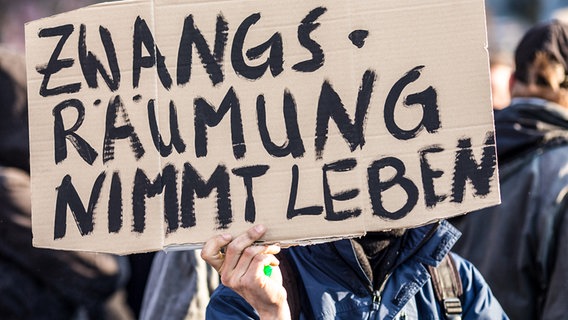 ZWANGS.
RÄUMUNG
NIMMT LEBEN